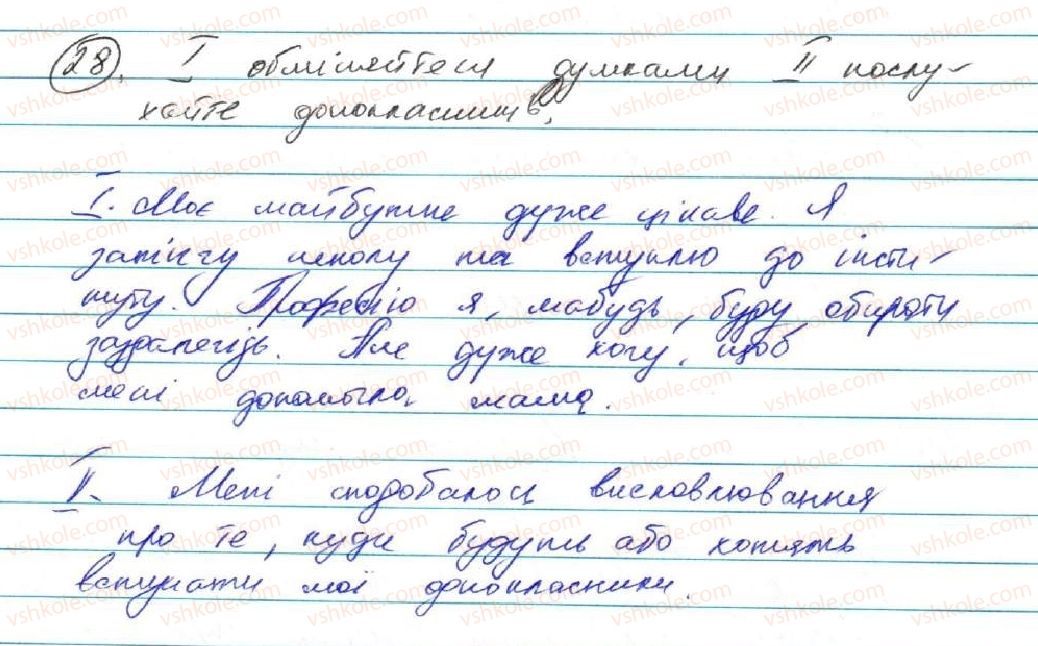 28. I обміняйтеся думками II послу-
хайте однокласників.
I. Моє майбутнє дуже цікаве. Я
закінчу школу та вступлю до інсти-
туту. Професію я, мабудь, буду обирати
заздалегідь. Але дуже хочу, щоб
мені допомогла мама.
II. Мені сподобалося висловлювання
про те, куди будуть або хотять
вступати мої однокласники.